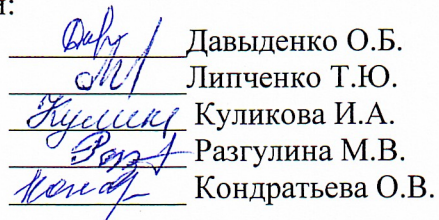 и:
Давыденко О.Б.
Липченко Т.Ю.
Кулик Куликова И.А.
Разгулина М.В.
Кондратьева О.В.